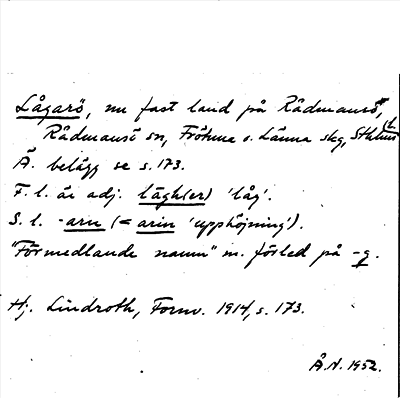 Lågarö, nu fast land på Rådmansö,
Rådmansö sn, Frötuna o. Länna skg, Sthlms l.
Ä. belägg se s. 173.
F. l. är adj. lāgh(er) 'låg'.
S. l. -arn (= arin 'upphöjning').
"Förmedlande namn" m. förled på -g.
Hj. Lindroth, Fornv. 1914, s. 173.
Å.N. 1952.